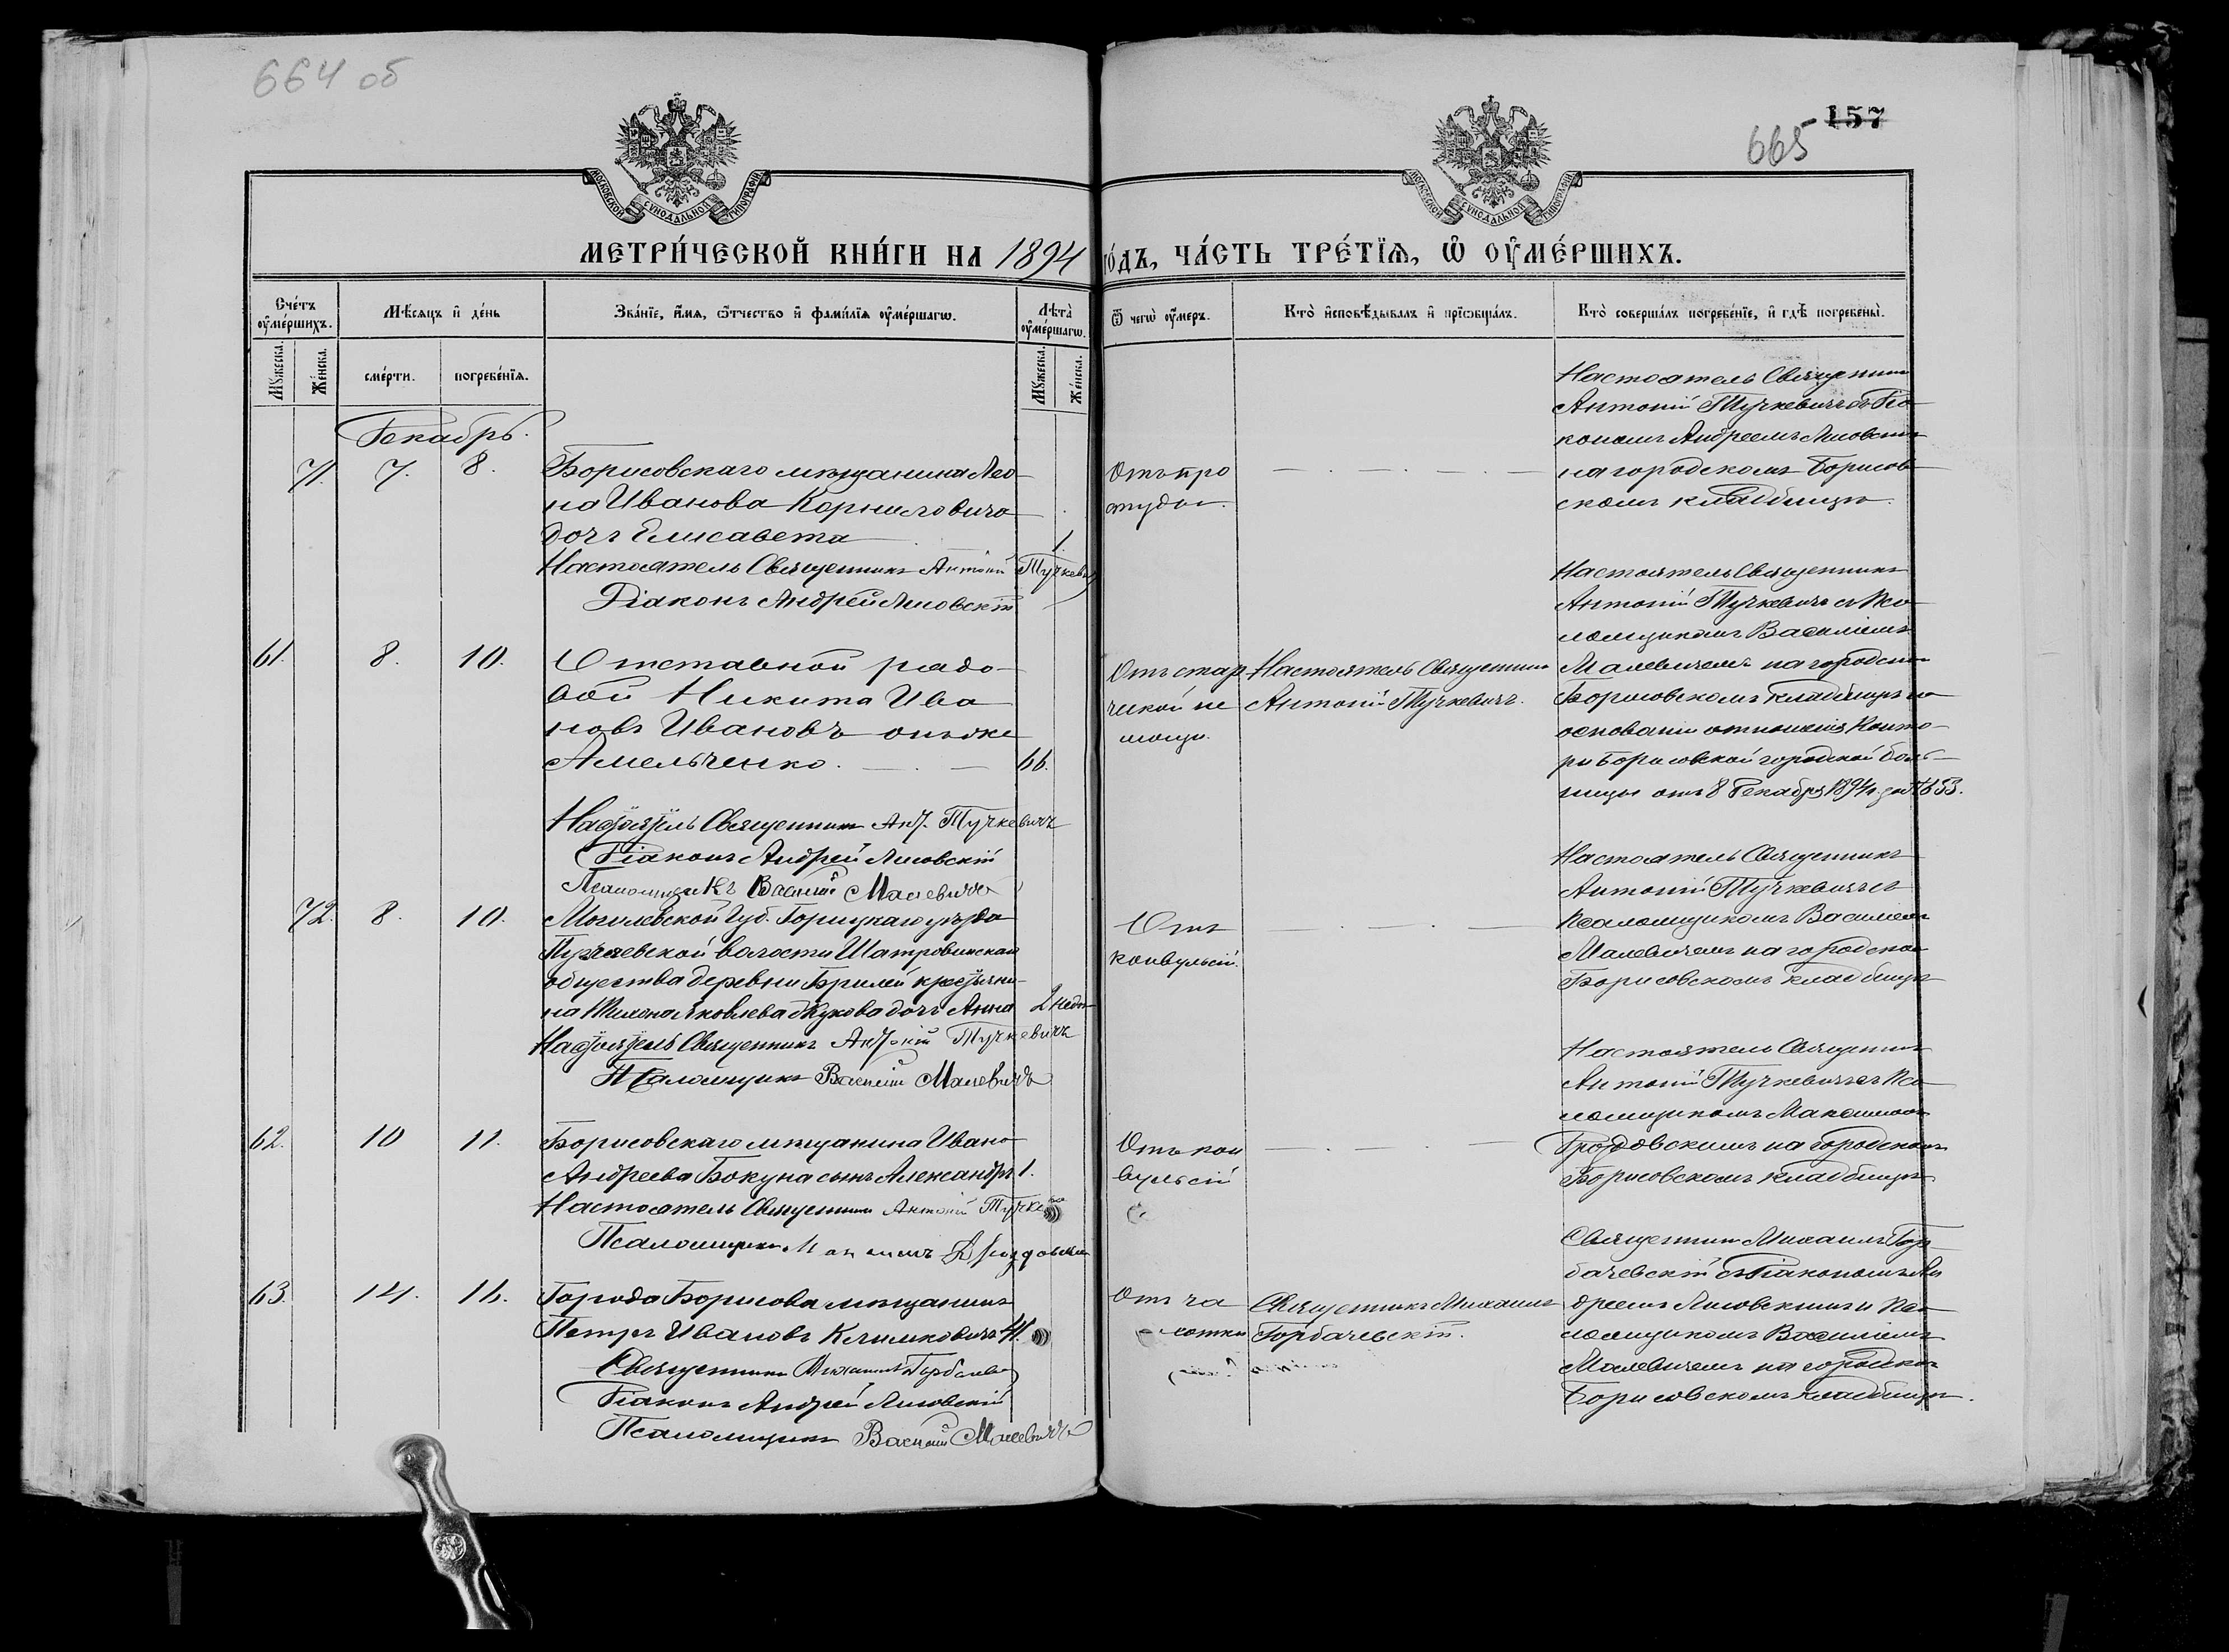 664 об
665
157
МОСКОВСКОЙ СѴНОДАЛЬНОЙ ТИПОГРАФІИ
МОСКОВСКОЙ СѴНОДАЛЬНОЙ ТИПОГРАФІИ
МЕТРИ́ЧЕСКОЙ КНИ́ГИ НА 1894 ГО́ДЪ, ЧА́СТЬ ТРЕ́ТЇѦ, Ѡ҆ ОУ҆МЕ́РШИХЪ.
Сче́тъ оу҆ме́ршихъ.
Мѣ́сяцъ и҆ де́нь
Зва́нїе, и҆́мя, ѻ҆́тчество и҆ фами́лїя оу҆ме́ршагѡ.
Лѣта̀ оу҆ме́ршагѡ.
Ѿ чегѡ̀ оу҆́меръ.
Кто̀ и҆сповѣ́дывалъ и҆ прїѡбща́лъ.
Кто̀ соверша́лъ погребе́нїе, и҆ гдѣ̀ погребены̀.
Мꙋ́жеска.
Же́нска.
сме́рти.
погребе́нїя.
Мꙋ́жеска.
Же́нска.
Декабрь.
71. 7. 8.
Борисовскаго мѣщанина Лео-
на Иванова Корниловича
дочь Елисавета 1.
Настоятель Священникъ Антоній Тучкевичъ
Діаконъ Андрей Лисовскій
Отъ про
студы.
Настоятель Священникъ
Антоній Тучкевичъ съ Діа-
кономъ Андреемъ Лисовскимъ
на городскомъ Борисов-
скомъ кладбищѣ.
61. 8. 10.
Отставной рядо-
вой Никита Ива
новъ Ивановъ онъ же
Амельченко. 66.
Настоятель Священникъ Ант. Тучкевичъ
Діаконъ Андрей Лисовскій
Псаломщикъ Василій Малевичъ
Отъ стар
ческой не
мощи.
Настоятель Священникъ
Антоній Тучкевичъ.
Настоятель Священникъ
Антоній Тучкевичъ съ Пса-
ломщикомъ Василіемъ
Малевичемъ на городскомъ
Борисовскомъ кладбищѣ на
основаніи отношенія Конто-
ры Борисовской городской боль-
ницы отъ 8 Декабря 1894 г. за № 653.
72. 8. 10.
Могилевской Губ. Горицкаго уѣзда
волости Шатровинскаго
общества деревни Брилей крестьяни-
на Тихона Яковлева Жукова дочь Анна 2 недѣ
Настоятель Священникъ Антоній Тучкевичъ
Псаломщикъ Василій Малевичъ
Отъ
конвульсій.
Настоятель Священникъ
Антоній Тучкевичъ съ
Псаломщикомъ Василіемъ
Малевичемъ на городскомъ
Борисовскомъ кладбищѣ
62. 10 11.
Борисовскаго мѣщанина Ивана
Андреева Бокуна сынъ Александръ 1.
Настоятель Священникъ Антоній Тучкевичъ
Псаломщикъ Максимъ Дроздовскій
Отъ кон
вульсій
Настоятель Священникъ
Антоній Тучкевичъ съ Пса-
ломщикомъ Максимомъ
Дроздовскимъ на городскомъ
Борисовскомъ кладбищѣ
63. 14. 16.
Города Борисова мѣщанинъ
Петръ Ивановъ Климковичъ 41.
Священникъ Михаилъ Горбачевскій
Діаконъ Андрей Лисовскій
Псаломщикъ Василій Малевичъ
Отъ ча
хотки
Священникъ Михаилъ
Горбачевскій.
Священникъ Михаилъ Гор-
бачевскій съ Діакономъ Ан
дреемъ Лисовскимъ и Пса-
ломщикомъ Василіемъ
Малевичемъ на городскомъ
Борисовскомъ кладбищѣ.